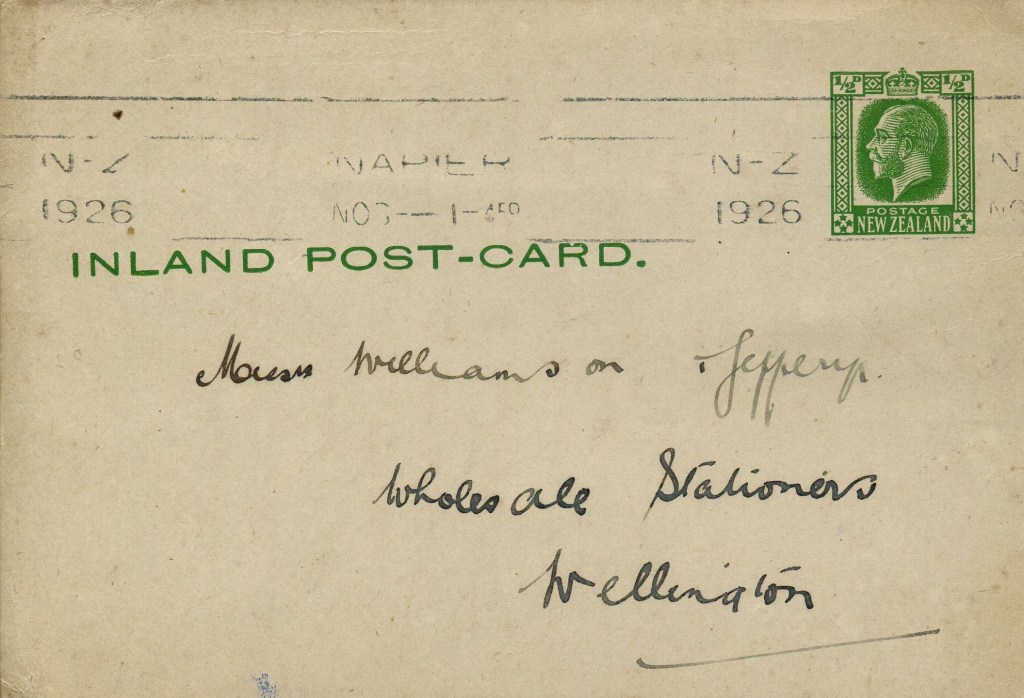 ½ᴰ ½ᴰ
N-Z NAPIER N-Z N
1926 1- 1926
POSTAGE
NEW ZEALAND
INLAND POST-CARD.
Messrs Williamson
Wholesale Stationers
Wellington